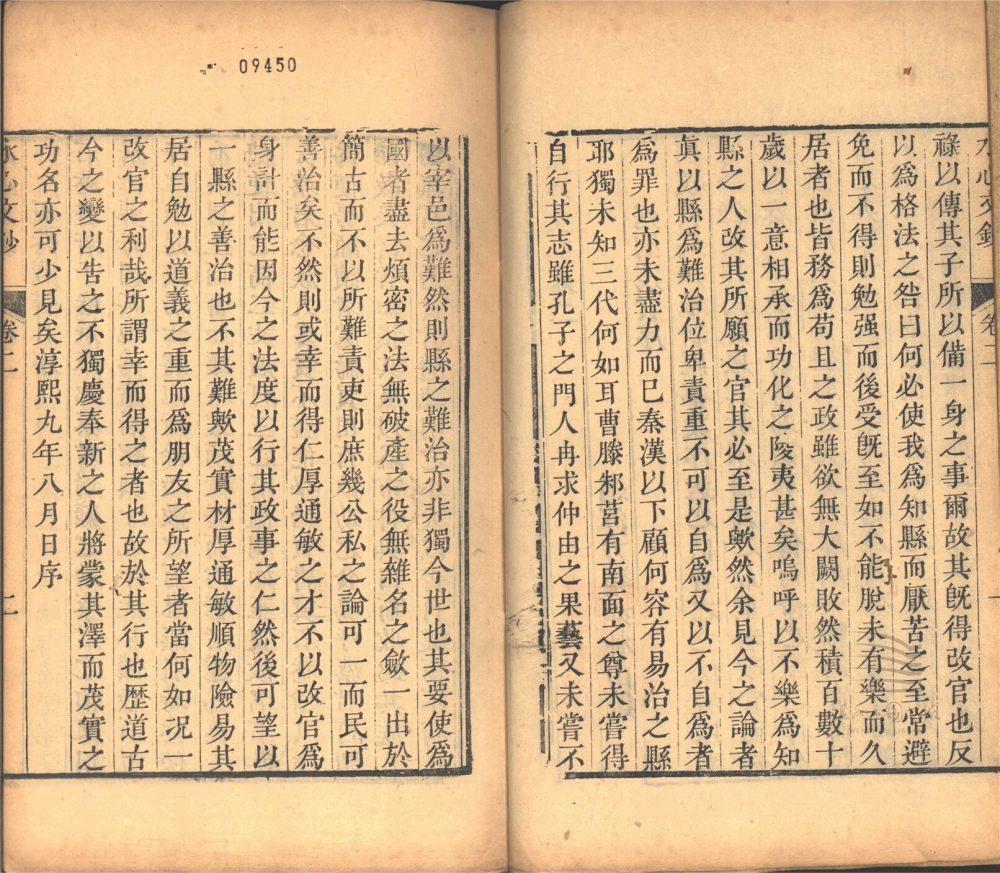 水心文鈔 卷二 一
祿以傳其子所以備一身之事爾故其旣得改官也反
以爲格法之咎曰何必使我爲知縣而厭苦之至常避
免而不得則勉强而後受旣至如不能脫未有樂而久
居者也皆務爲苟且之政雖欲無大闕敗然積百數十
歲以一意相承而功化之陵夷甚矣嗚呼以不樂爲知
縣之人改其所願之官其必至是歟然余見今之論者
眞以縣爲難治位卑責重不可以自爲又以不自爲者
爲罪也亦未盡力而已秦漢以下顧何容有易治之縣
耶獨未知三代何如耳曹滕邾莒有南面之尊未嘗得
自行其志雖孔子之門人冉求仲由之果藝又未嘗不
09450
以宰邑爲難然則縣之難治亦非獨今世也其要使爲
國者盡去煩密之法無破產之役無雜名之斂一出於
簡古而不以所難責吏則庶幾公私之論可一而民可
善治矣不然則或幸而得仁厚通敏之才不以改官爲
身計而能因今之法度以行其政事之仁然後可望以
一縣之善治也不其難歟茂實材厚通敏順物險易其
居自勉以道義之重而爲朋友之所望者當何如况一
改官之利哉所謂幸而得之者也故於其行也歷道古
今之變以告之不獨慶奉新之人將蒙其澤而茂實之
功名亦可少見矣淳熙九年八月日序
水心文鈔 卷二 二